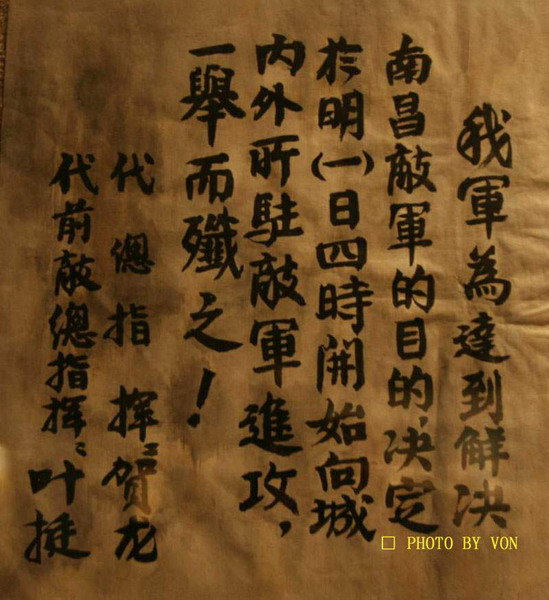 我軍為達到解决
南昌敵軍的目的,决定
於明(一)日四時開始向城
内外所駐敵軍進攻,
一舉而殲之!
代總指揮:賀龙
代前敵總指揮:叶挺
□ PHOTO BY VON